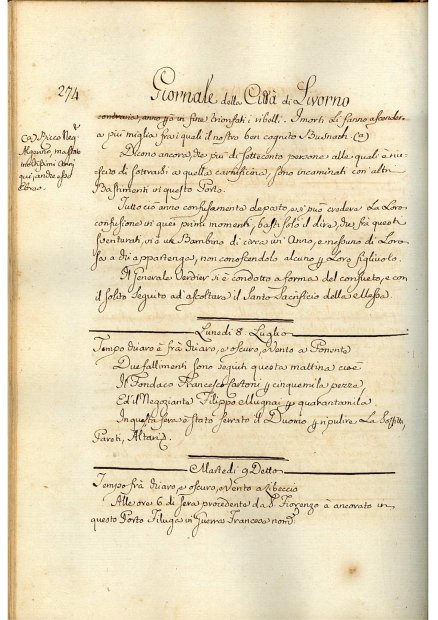 274
Giornale della Città di Livorno
contraria, anno poi in fine trionfati i ribelli. I morti Li fanno ascender
a più migliaja fra i quali il nostro ben cognito Busnach (a)
(a) Ricco Neg.
Algerino, ma stato
moltissimi Anni
qui
Ebreo.
Dicono ancora, che più di settecento persone alle quali è riu=
scito di sottrarsi a quella carnificina, sono incaminati con altri
Bastimenti a questo Porto.
Tutto ciò anno confusamente deposto, e si può credere La Loro
confusione in quei primi momenti, basti solo il dire, che frà questi
sventurati, vi è un Bambino di circa un' Anno, e nessuno di Loro
sa a chi appartenga, non conoscendolo alcuno per Loro figliuolo.
Il Generale Verdier si è condotto a forma del consueto, e con
il solito seguito ad ascoltare il Santo Sacrificio della Messa.
Lunedì 8. Luglio
Tempo chiaro è frà chiaro, e oscuro, e Vento a Ponente
Due fallimenti sono seguiti questa mattina cioè
Il Fondaco Francesco Cartoni per cinquemila pezze,
Ed il Negoziante Filippo Mugnai per quarantamila.
In questa sera è stato serrato il Duomo per ripulire La Soffitta,
Pareti, Altari
Martedì 9 Detto
Tempo frà chiaro, e oscuro, e Vento a Libeccio
Alle ore 6 di sera procedente da S. Fiorenzo à ancorato in
questo Porto Filuga in Guerra Francese nom.